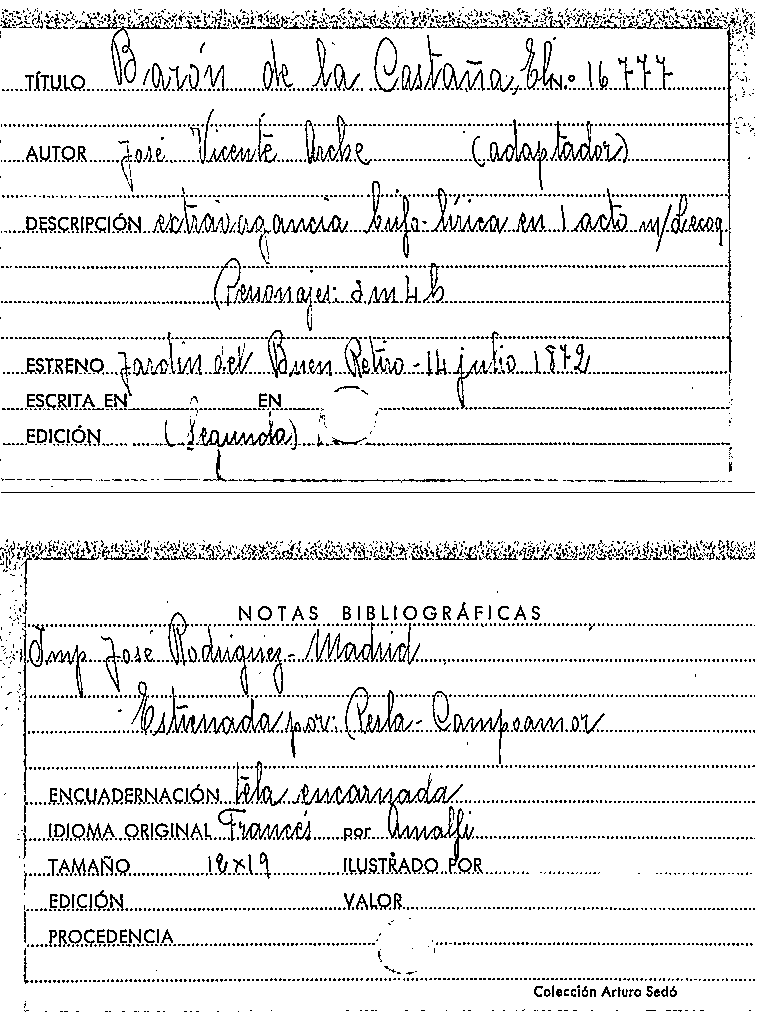 TÍTULO Barón de la Castaña, El N.º 16777
AUTOR José Vicente Arche (adaptador)
DESCRIPCIÓN extravagancia bufo-lírica en 1 acto m/Lecoq
Personajes: 2 m 4 h
ESTRENO Jardín del Buen Retiro - 14 julio 1872
ESCRITA EN EN
EDICIÓN (Segunda)
NOTAS BIBLIOGRÁFICAS
Imp José Rodríguez - Madrid
Estrenada por: Perla - Campoamor
ENCUADERNACIÓN tela encarnada
IDIOMA ORIGINAL Francés por Amalfi
TAMAÑO 12x19 ILUSTRADO POR
EDICIÓN VALOR
PROCEDENCIA
Colección Arturo Sedó